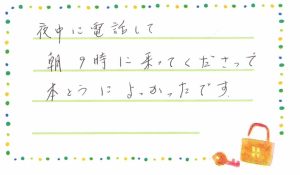 夜中に電話して
朝9時に来てくださって
本とうによかったです